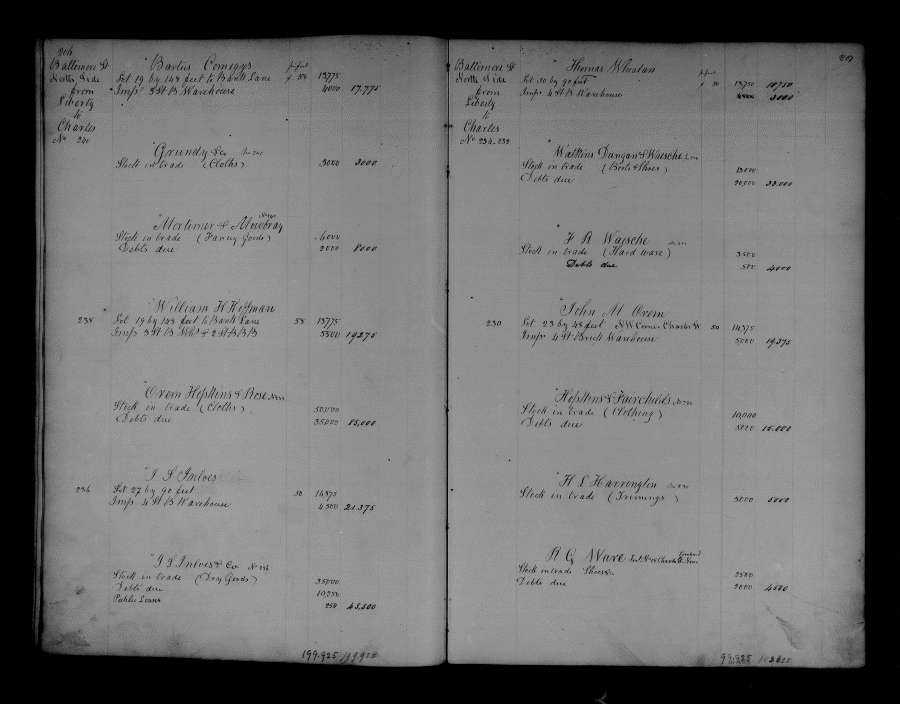 206
Baltimore St
North Side
from
Liberty
to
Charles
No 240
" Bartus Comegys
Lot 19 by 148 feet to Bank Lane 58 13775
Imps 3 St B Warehouse 4000 17.775
" Grundy & Co No 240
Stock in trade (Cloths) 3000 3000
" Mortimer & Mowbray No 240
Stock in trade (Fancy goods) 6000
Debts due 2000 8000
" William H Hoffman
238 Lot 19 by 148 feet to Bank Lane 58 13775
Imps 3 St B Whs & 2 St B B B 5500 19275
" Orem Hopkins & Rose
Stock in trade (Cloths) 50,000
Debts due 35,000 85,000
" I S Inloes
236 Lot 27 by 90 feet 50 16875
Imps 4 St B Warehouse 4,500 21.375
" I S Inloes & Co No 236
Stock in trade (Dry Goods) 35000
Debts due 10,250
Public Loans 250 45,500
199.925 199925
207
Baltimore St
North Side
from
Liberty
to
Charles
No 234-232
" Thomas Whelan
Lot 30 by 90 feet 50 18750 18,750
Imps 4 St B Warehouse 3000
" Watkins Dungan & Waesche
Stock in trade (Boots & Shoes)
Debts due 20,000 33.000
" F A Waesche
Stock in trade (Hard ware) 3500
Debts due 500 4000
" John M Orem
230 Lot 23 by 48 feet NW Corner Charles St 50 14375
Imps 4 St Brick Warehouse 5000 19.375
" Hopkins & Fairchilds No 230
Stock in trade (Clothing) 10,000
Debts due 5000 15.000
" H L Harrington No 230
Stock in trade (Trimings) 5000 5000
" R G Ware
Stock in trade Shoes 2500
Debts due 2000 4500
99.925